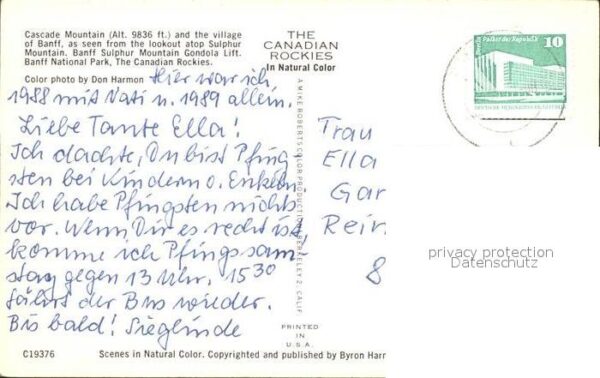 Cascade Mountain (Alt. 9836 ft.) and the village
of Banff, as seen from the lookout atop Sulphur
Mountain. Banff Sulphur Mountain Gondola Lift.
Banff National Park, The Canadian Rockies.
Color photo by Don Harmon
Hier war ich
1988 mit Vati u. 1989 allein.
Liebe Tante Ella!
Ich dachte, Du bist Pfing
sten bei Kindern o. Enkeln
Ich habe Pfingsten nichts
vor. Wenn Dir es recht ist,
komme ich Pfingssam
stag gegen 13 Uhr. 15 30
fährt der Bus wieder.
Bis bald! Sieglinde
C19376
Scenes in Natural Color. Copyrighted and published by Byron Harr
THE
CANADIAN
ROCKIES
In Natural Color
A MIKE ROBERTS COLOR PRODUCTION BERKELEY 2, CALIF.
PRINTED
IN
U.S.A.
Berlin, Palast der Republik
10
DEUTSCHE DEMOKRATISCHE REPUBLIK
Frau
Ella
Gar
Rein
8
privacy protection
Datenschutz